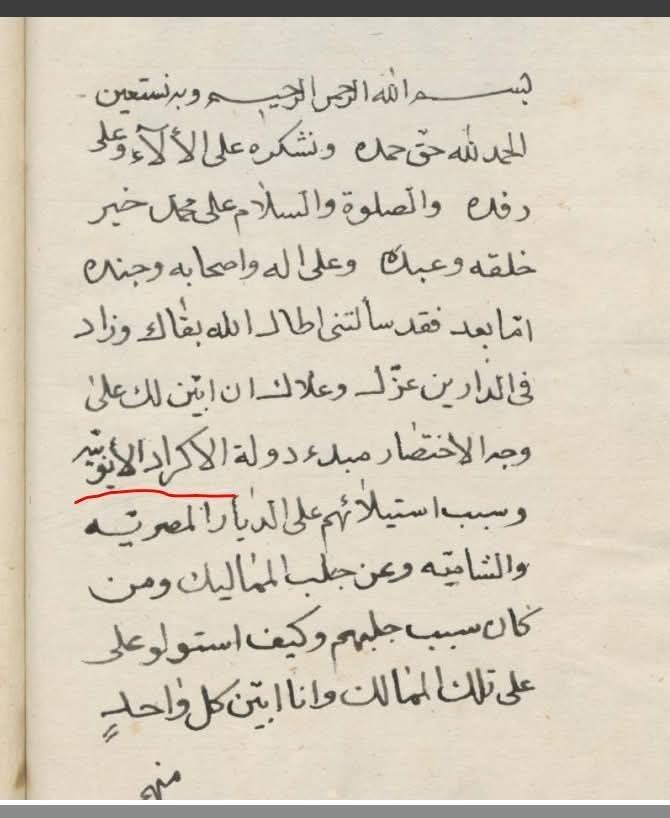 بسم الله الرحمن الرحيم وبه نستعين
الحمد لله حق حمده ونشكره على الألآء وعلى
رفده والصلوة والسلام على محمد خير
خلقه وعبده وعلى اله واصحابه وجنده
امّا بعد فقد سألتنى اطال الله بقاك وزاد
فى الدارين عزّك وعلاك ان ابيّن لك على
وجه الاختصار مبدء دولة الاكراد الأيوبيّه
وسبب استيلائهم على الديار المصريّه
والشاميّه وعن جلب المماليك ومن
كان سبب جلبهم وكيف استولو على
على تلك الممالك وانا ابيّن كل واحدٍ
منهم